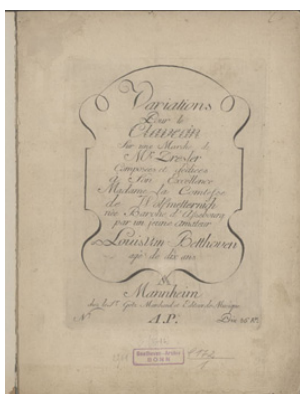 Variations
Pour le
Clavecin
Sur une Marche de
Mr. Dresler
Composées et dediées
à Son Excellence
Madame la Comtesse
de Wolfmetternich
née Baronne d'Assebourg
par un jeune amateur
Louis van Betthoven
agé de dix ans
Mannheim
chez le Sr. Götz Marchand et Editeur de Musique
No.
A.P.
Prix
Beethoven-Archiv
BONN